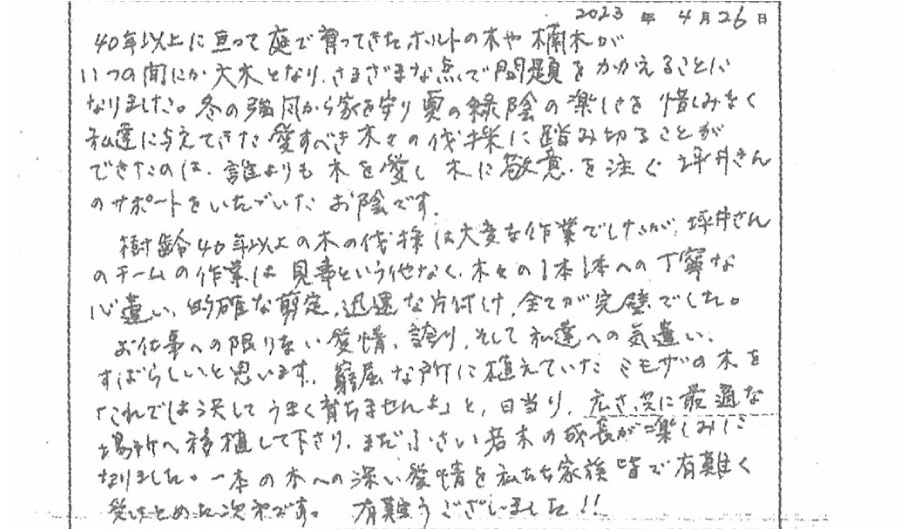 2023 年 4月26日
40年以上に亘って庭で育ってきたホルトの木や楠木が
いつの間にか大木となり、さまざまな点で問題をかかえることに
なりました。冬の強風から家を守り夏の緑陰の楽しさを惜しみなく
私達に与えてきた愛すべき木々の伐採に踏み切ることが
できたのは、誰よりも木を愛し木に敬意を注ぐ坪井さん
のサポートをいただいたお陰です。
樹齢40年以上の木の伐採は大変な作業でしたが、坪井さん
のチームの作業は見事という他なく、木々の1本1本への丁寧な
心遣い、的確な剪定、迅速な片付け、全てが完璧でした。
お仕事への限りない愛情、誇り、そして私達への気遣い、
すばらしいと思います。窮屈な所に植えていたミモザの木を
「これでは決してうまく育ちませんよ」と、日当り、広さ、共に最適な
場所へ移植して下さり、まだ小さい若木の成長が楽しみに
なりました。一本の木への深い愛情を私たち家族皆で有難く
受けとめた次第です。 有難うございました!!